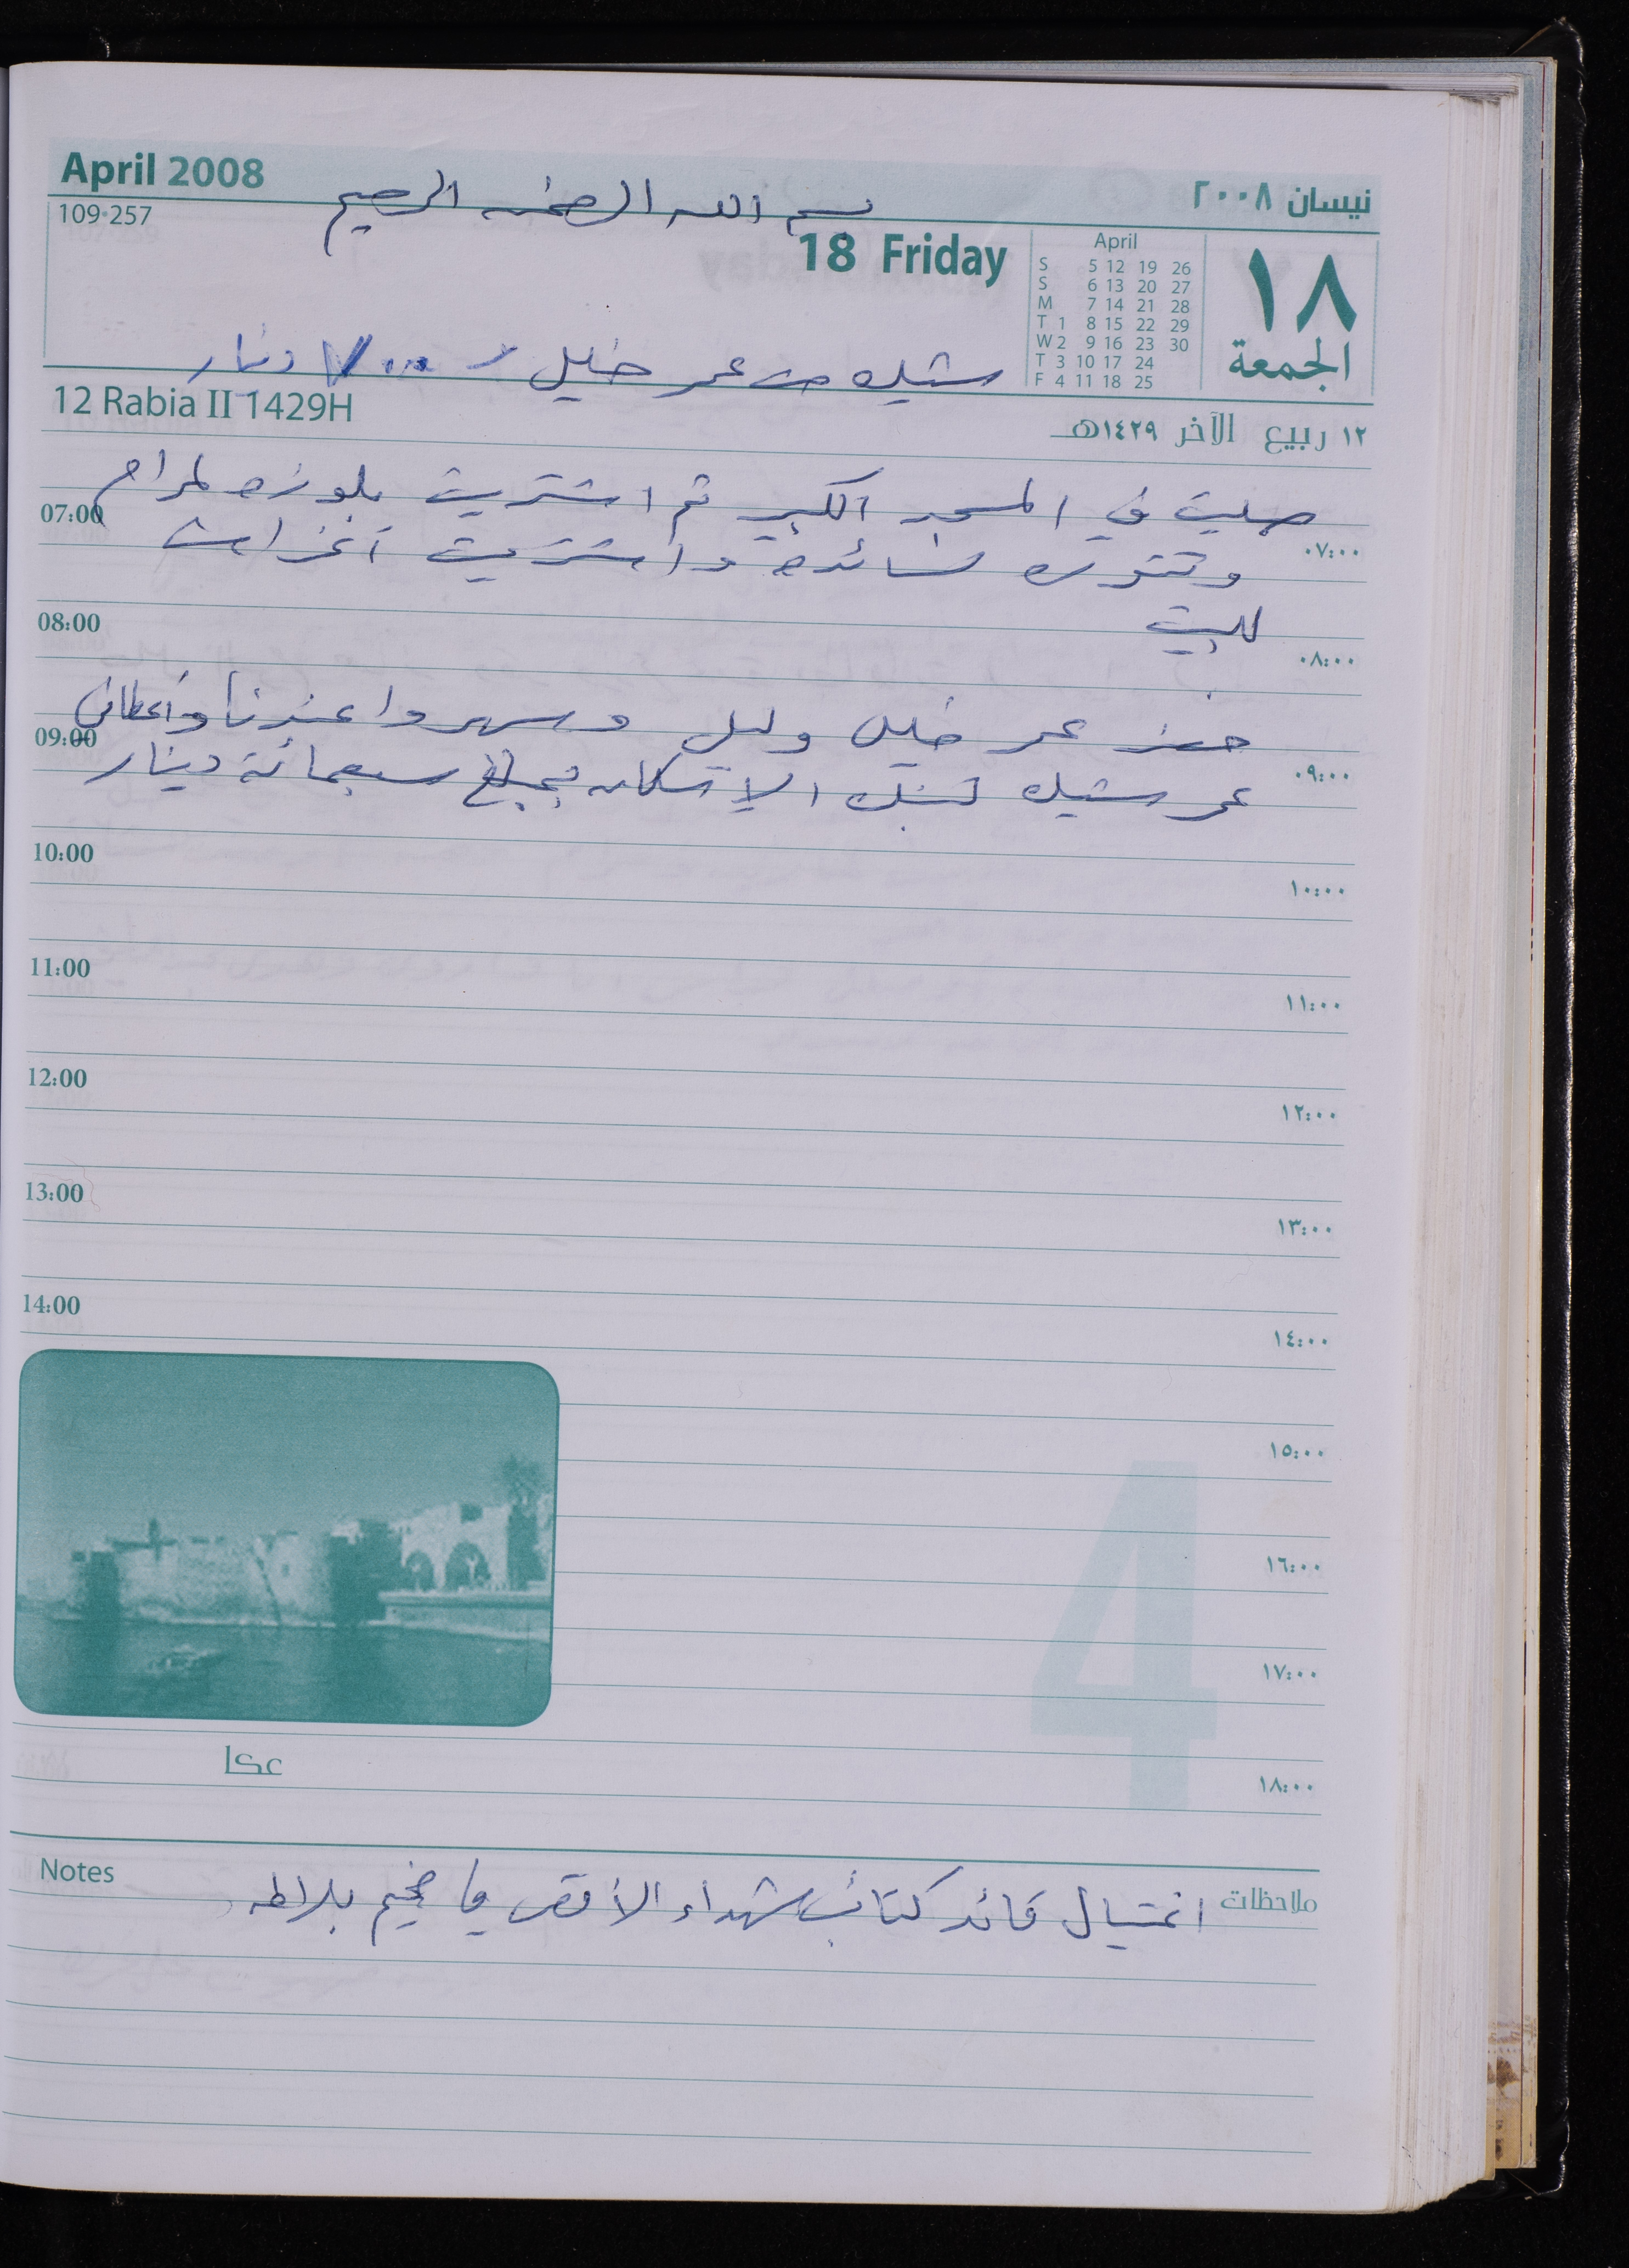 April 2008
نيسان ٢٠٠٨
بسم الله الرحمن الرحيم
109-257
18 Friday
April
S 5 12 19 26
S 6 13 20 27
M 7 14 21 28
T 1 8 15 22 29
W 2 9 16 23 30
T 3 10 17 24
F 4 11 18 25
١٨
الجمعة
شيك من عمر خليل دينار
12 Rabia II 1429H
١٢ ربيع الآخر ١٤٢٩هـ
صليت في المسجد الكبير ثم اشتريت بلوزه لمرام
07:00
٠٧:٠٠
وتنوره لسائده واشتريت أغراض
للبيت
08:00
٠٨:٠٠
عمر خليل وليلى وسهروا عندنا وأعطاني
09:00
٠٩:٠٠
عمر شيك لبنك الاسكان بمبلغ سبعمائة دينار
10:00
١٠:٠٠
11:00
١١:٠٠
12:00
١٢:٠٠
13:00
١٣:٠٠
14:00
١٤:٠٠
١٥:٠٠
١٦:٠٠
١٧:٠٠
4
عكا
١٨:٠٠
Notes
ملاحظات
اغتيال قائد كتائب شهداء الأقصى في مخيم بلاطه